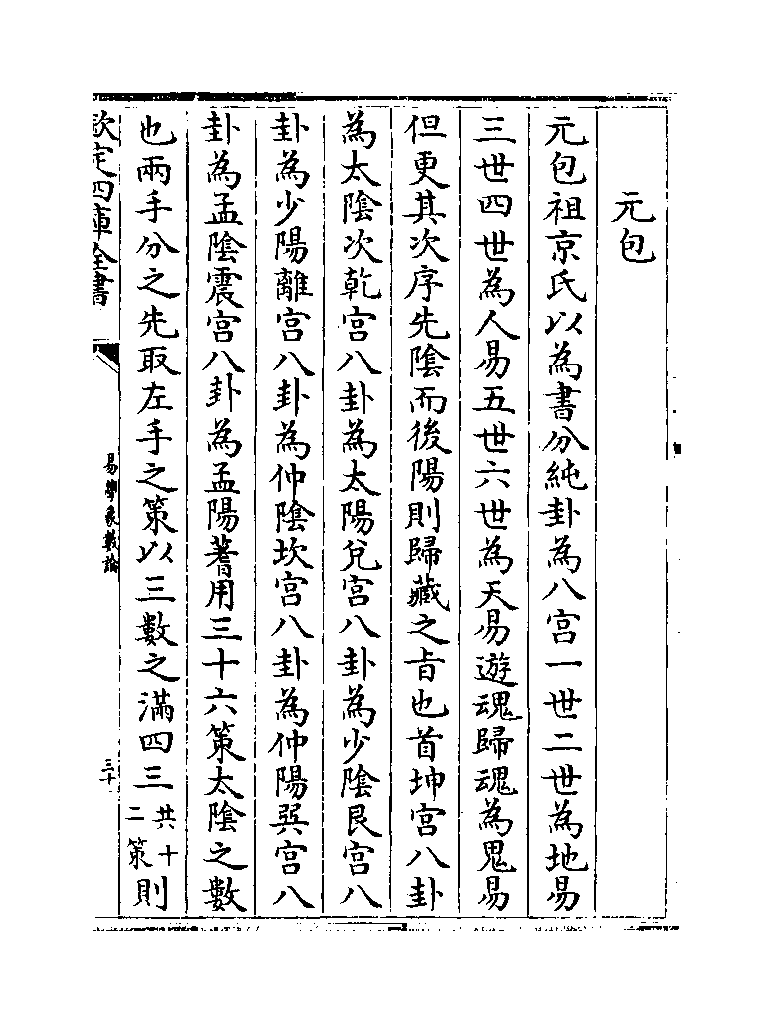 元包
元包祖京氏以為書分純卦為八宫一世二世為地易
三世四世為人易五世六世為天易遊魂歸魂為鬼易
但更其次序先陰而後陽則歸藏之㫖也首坤宫八卦
為太陰次乾宫八卦為太陽兌宫八卦為少陰艮宫八
卦為少陽離宫八卦為仲陰坎宫八卦為仲陽巽宫八
卦為孟陰震宫八卦為孟陽蓍用三十六策太陰之數
也兩手分之先取左手之策以三數之滿四三共十二策則
欽定四庫全書
易學象數論
三十